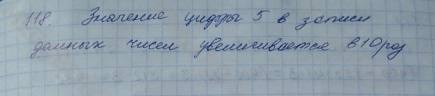 118. Значение цифры 5 в записи
данных чисел увеличивается в 10 раз